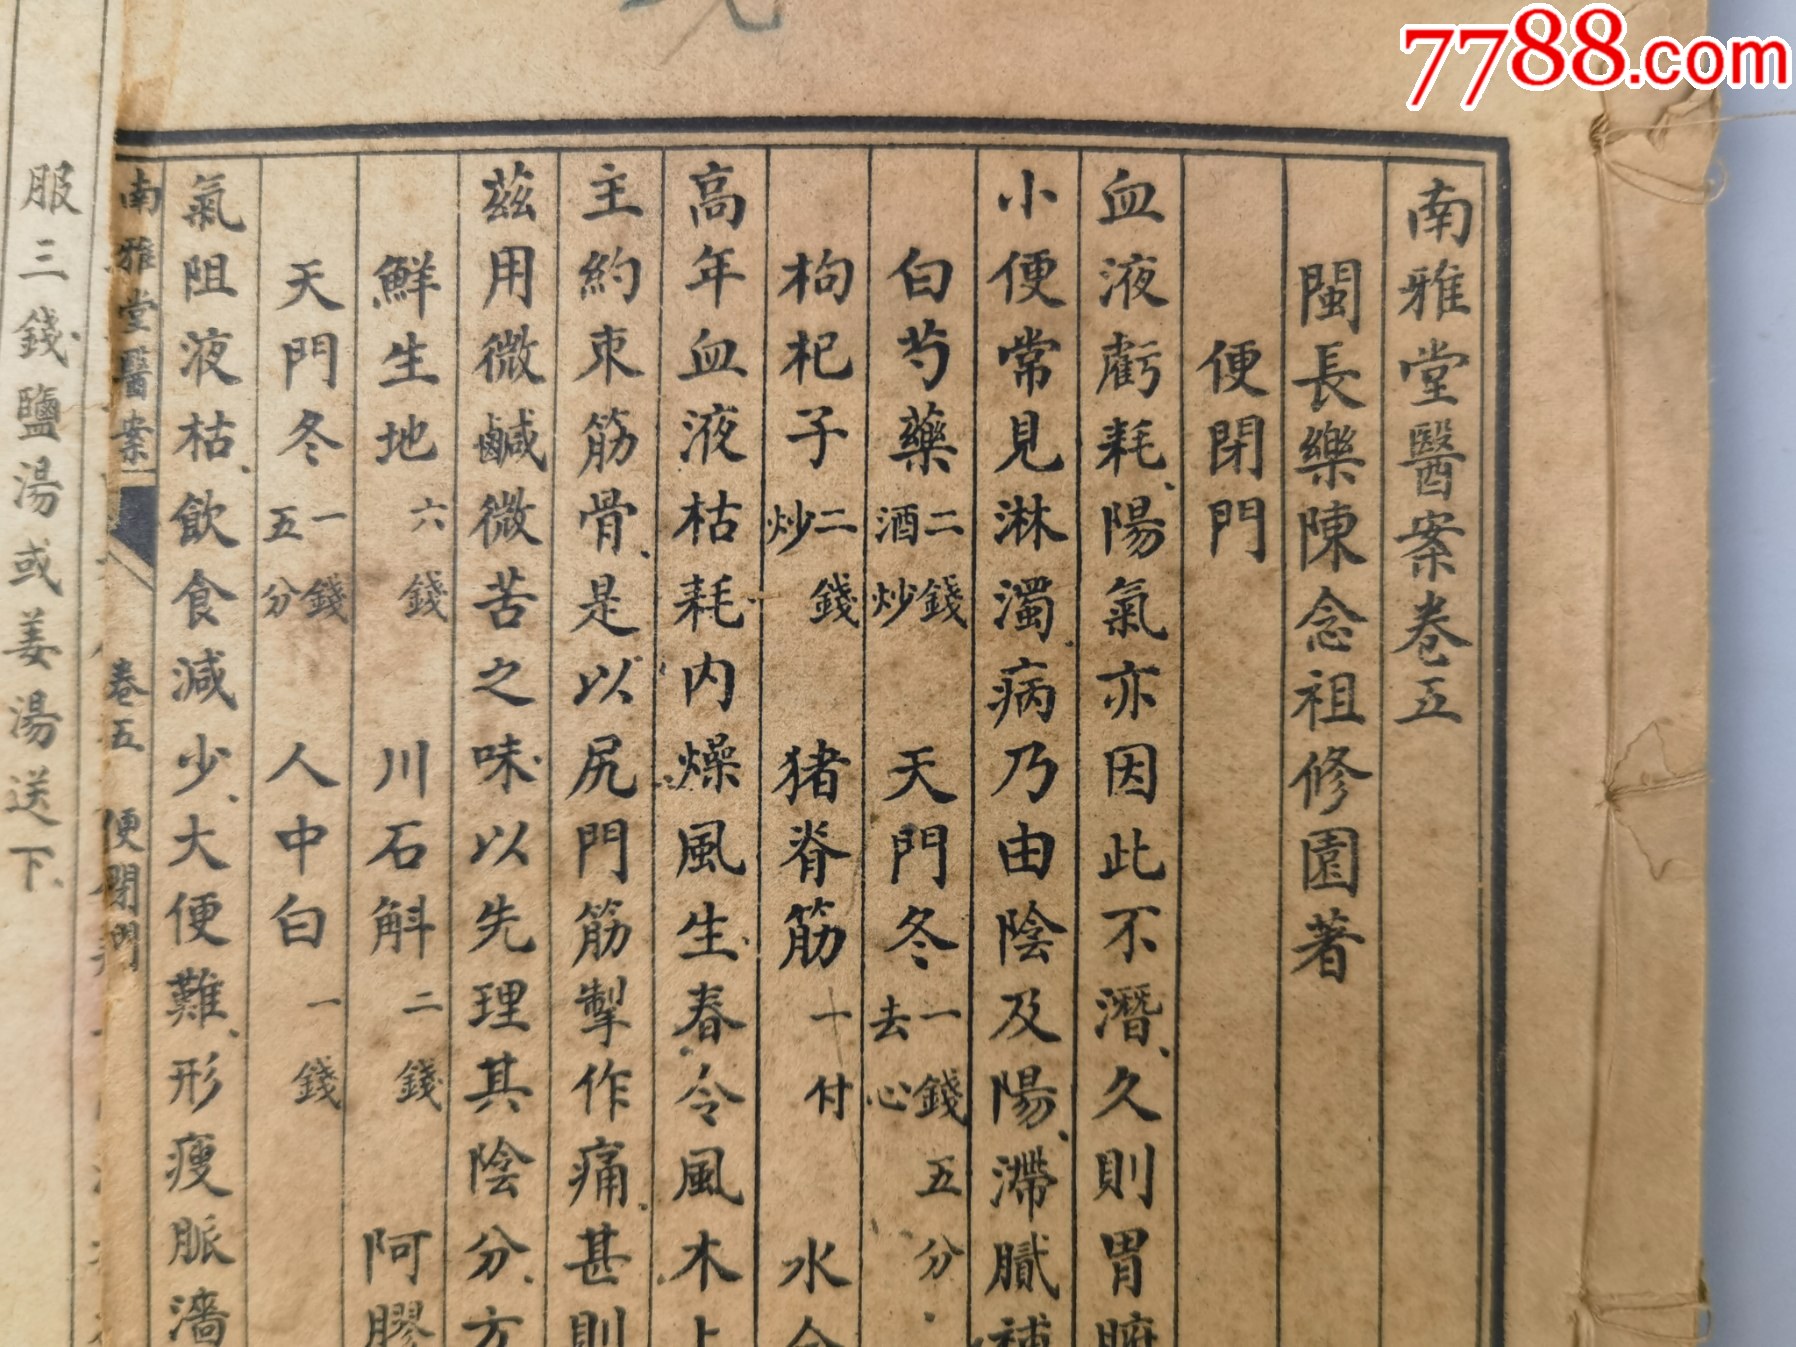 7788.com
南雅堂醫案卷五
閩長樂陳念祖修園著
便閉門
血液虧耗、陽氣亦因此不潛、久則胃腑
小便常見淋濁、病乃由陰及陽、滯膩補
白芍藥 二錢酒炒 天門冬 一錢五分去心
枸杞子 二錢炒 猪脊筋 一付 水
高年血液枯耗、内燥風生、春令風木上
主約束筋骨、是以尻門筋掣作痛、甚則
茲用微鹹微苦之味、以先理其陰分、方
鮮生地 六錢 川石斛 二錢 阿膠
天門冬 一錢五分 人中白 一錢
氣阻液枯、飲食減少、大便難、形瘦脈濇
南雅堂醫案 卷五 便閉門
服三錢、鹽湯或姜湯送下、